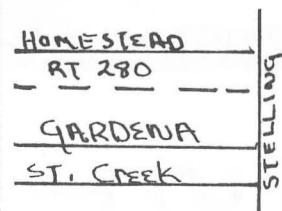 HOMESTEAD
RT 280
GARDENA
ST. CREEK
STELLING